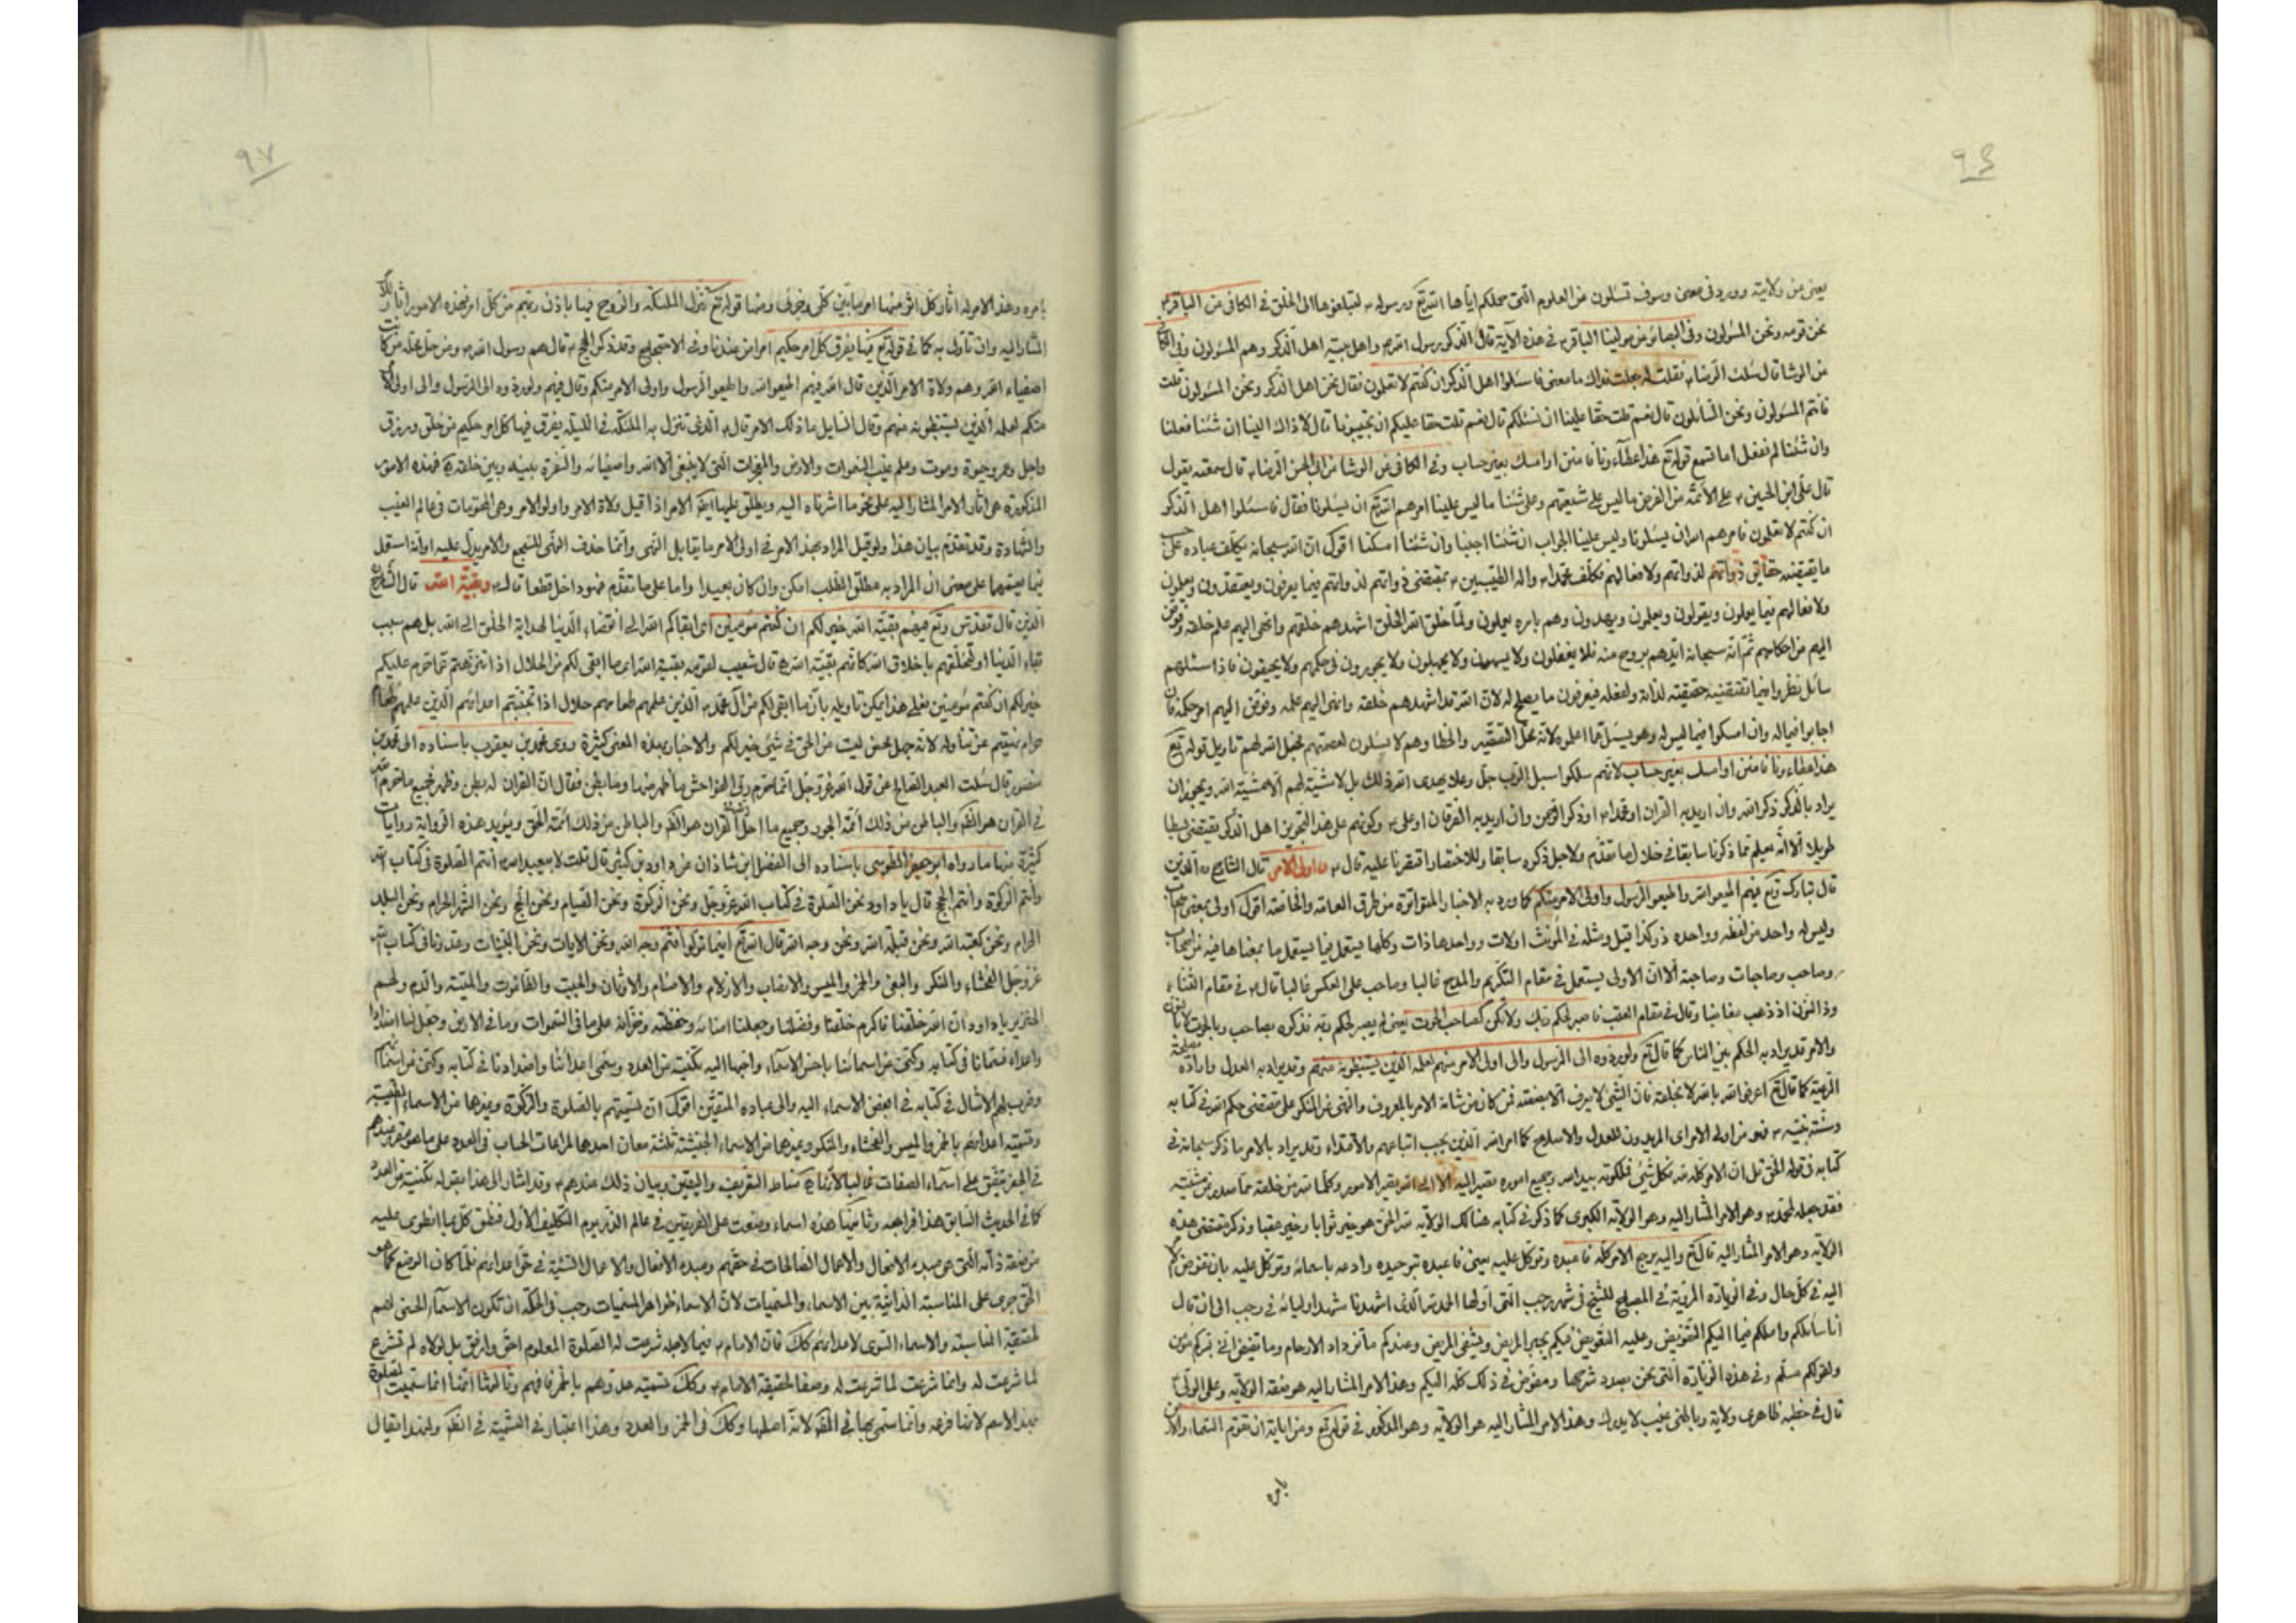 ٩٤
يعنى من ولايته وورد فى معنى وسوف تسئلون من العلوم التى حملكم اياها الله تع ورسوله ص لتبلغوها الى الخلق فى الكافى عن الباقر ع
نحن قومه ونحن المسئولون وفى البصائر عن مولينا الباقر ع فى هذه الآية قال الذكر رسول الله ص واهل بيته اهل الذكر وهم المسئولون وفى
عن الوشا قال سئلت الرضا ع فقلت له جعلت فداك ما معنى فاسئلوا اهل الذكر ان كنتم لا تعلمون فقال نحن اهل الذكر ونحن المسئولون قلت
فانتم المسئولون ونحن السائلون قال نعم قلت حقا علينا ان نسئلكم قال نعم قلت حقا عليكم ان تجيبونا قال لا ذاك الينا ان شئنا فعلنا
وان شئنا لم نفعل اما تسمع قوله تع هذا عطاؤنا فامنن او امسك بغير حساب وفى الكافى عن الوشا عن ابى الحسن الرضا ع قال سمعته يقول
قال على ابن الحسين ع على الأئمة من الفرض ما ليس على شيعتهم وعلى شيعتنا ما ليس علينا امرهم الله تع ان يسئلونا فقال فاسئلوا اهل الذكر
ان كنتم لا تعلمون فامرهم الله ان يسئلونا وليس علينا الجواب ان شئنا اجبنا وان شئنا امسكنا اقول ان الله سبحانه يكلف عباده على
ما يقتضيه حقايق ذواتهم لذواتهم ولافعالهم فكلف محمدا ص واله الطيبين ع بمقتضى ذواتهم لذواتهم فيما يعرفون ويعتقدون ويعلمون
ولافعالهم فيما يعملون ويقولون ويعلمون ويهدون وهم بامره يعملون ولما خلق الله الخلق اشهدهم خلقهم وانهى اليهم علم خلقه وفوض
اليهم من احكامهم ثم انه سبحانه ايدهم بروح منه فلا يغفلون ولا يسهون ولا يجهلون ولا يجورون فى حكمهم ولا يحيفون فاذا سئلهم
سائل نظروا فيما تقتضيه حقيقته لذاته ولفعله فيعرفون ما يصلح له لان الله قد اشهدهم خلقه وانهى اليهم علمه وفوض اليهم امر حكمه فان
اجابوا فيما له وان امسكوا فيما ليس له وهو يسئل عما اعلوه لانه محل التقصير والخطا وهم لا يسئلون لعصمتهم بجعل الله لهم تاويل قوله تع
هذا عطاؤنا فامنن او امسك بغير حساب لانهم سلكوا سبل الرب جل وعلا بهدى الله فى ذلك بل لا مشية لهم الا مشية الله ويجوز ان
يراد بالذكر ذكر الله وان اريد به القران او محمد ص او ذكر الرحمن وان اريد به الفرقان او على ع وكونهم على هذا التجويز اهل الذكر يقتضى بسطا
طويلا الا انه يعلم مما ذكرنا سابقا فى خلال ما تقدم ولاجل ذكره سابقا وللاختصار اقتصرنا عليه قال ع واولى الامر قال الشارح ره الذين
قال تبارك وتع فيهم اطيعوا الله واطيعوا الرسول واولى الامر منكم كما ورد به الاخبار المتواترة من طرق العامة والخاصة اقول اولى بمعنى اصحاب
وليس له واحد من لفظه وواحده ذو كذا قيل ومثله فى المؤنث اولات وواحدها ذات وكلها يستعمل فيما يستعمل ما بمعناها فيه من اصحاب
وصاحب وصاحبات وصاحبة الا ان الاولى يستعمل فى مقام التكريم والمدح غالبا وصاحب على العكس غالبا قال ع فى مقام الثناء
وذا النون اذ ذهب مغاضبا وقال فى مقام العتب فاصبر لحكم ربك ولا تكن كصاحب الحوت يعنى لم يصبر لحكم ربه فذكره بصاحب وبالحوت
والامر قد يراد به الحكم بين الناس كما قال تع ولو ردوه الى الرسول والى اولى الامر منهم لعلمه الذين يستنبطونه منهم وقد يراد به العدل واراده
الرعية كما قال ع اعرفوا الله بالله لا بخلقه فان الشىء لا يعرف الا بصفته فمن كان من شانه الامر بالمعروف والنهى عن المنكر على مقتضى حكم الله فى كتابه
وسنة نبيه ص فهو من اولى الامر اى المريدون للعدل والاصلاح كما امر الله الذين يجب اتباعهم والاقتداء وقد يراد بالامر ما ذكر سبحانه فى
كتابه فى قوله الحق قل ان الامر كله لله فكل شىء فملكوته بيد الله وجميع اموره تصير اليه الا الى الله تصير الامور وكلما لله من خلقه مما صدر عن مشيته
فقد جعله لمحمد ص وهو الامر المشار اليه وهو الولاية الكبرى كما ذكر فى كتابه هنالك الولاية لله الحق هو خير ثوابا وخير عقبا وذكر مقتضى هذه
الولاية وهو الامر المشار اليه قال تع واليه يرجع الامر كله فاعبده وتوكل عليه يعنى فاعبده بتوحيده وادعه باسمائه وتوكل عليه بان تفوض
اليه فى كل حال وفى الزيارة المروية فى المصباح للشيخ فى شهر رجب التى اولها الحمد لله الذى اشهدنا مشهد اوليائه فى رجب الى ان قال
انا سائلكم واملكم فيما اليكم التفويض وعليه التعويض فبكم يجبر المهيض ويشفى المريض وعندكم ما تزداد الارحام وما تغيض انى بسركم مؤمن
ولقولكم مسلم وفى هذه الزيارة التى نحن بصدد شرحها ومفوض فى ذلك كله اليكم وهذا الامر المشار اليه هو صفة الولاية وعلى الولى
قال فى خطبه ظاهرى ولاية وباطنى غيب لا يدرك وهذا الامر المشار اليه هو الولاية وهو المذكور فى قوله تع ومن اياته ان تقوم السماء والارض
بامره
٩٧
بامره وهذا الامر له اثار وكل اثر منها امر ما بين كلى وجزئى ومنها قوله تع تنزل الملئكة والروح فيها باذن ربهم من كل امر فهذه الامور اثار ذلك
المشار اليه وان تأول به كما فى قوله تع فيها يفرق كل امر حكيم امرا من عندنا وفى الاحتجاج وقد ذكر الحجج ع قال هم رسول الله ص ومن حل محله من
اصفياء الله وهم ولاة الامر الذين قال الله فيهم اطيعوا الله واطيعوا الرسول واولى الامر منكم وقال فيهم ولو ردوه الى الرسول والى اولى الامر
منكم لعلمه الذين يستنبطونه منهم وقال السايل ما ذلك الامر قال ع الذى تنزل به الملئكة فى الليلة يفرق فيها كل امر حكيم من خلق ورزق
واجل وعمر وحيوة وموت وعلم غيب السموات والارض والمعجزات التى لا ينبغى الا لله واصفيائه والسفرة بينه وبين خلقه فهذه الامور
المذكورة هى اثار الامر المشار اليه على نحو ما اشرنا اليه ويطلق عليها ايضا الامر اذا قيل ولاة الامر واولو الامر وهى المحتومات فى عالم الغيب
والشهادة وقد تقدم بيان هذا ولو قيل المراد بهذا الامر فى اولى الامر ما يقابل النهى وانما حذف النهى للسجع والامر يدل عليه او انه استعمل
فيما يعمهما على معنى ان المراد به مطلق الطلب امكن وان كان بعيدا واما على ما تقدم فهو داخل قطعا قال ع وبقية الله قال الشارح ره
الذين قال تقدس وتع فيهم بقية الله خير لكم ان كنتم مؤمنين اى ابقاكم الله الى انقضاء الدنيا لهداية الخلق الى الله بل هم سبب
بقاء الدنيا او لتخلقهم باخلاق الله كانهم بقية الله قال شعيب لقومه بقية الله اى ما ابقى لكم من الحلال اذا تنزهتم عما حرم عليكم
خير لكم ان كنتم مؤمنين فعلى هذا يمكن تاويله بان ما ابقى لكم من آل محمد ص الذين علمهم طعامهم حلال اذا تجنبتم اعدائهم الذين علمهم طعام
حرام نهيتم عن تناوله لانه جهل محض ليست من الحق فى شىء خير لكم والاخبار بهذه المعنى كثيرة روى محمد بن يعقوب باسناده الى محمد بن
منصور قال سئلت العبد الصالح عن قول الله عز وجل انما حرم ربى الفواحش ما ظهر منها وما بطن فقال ان القران له بطن وظهر فجميع ما حرم الله
فى القران هو الظهر والباطن من ذلك أئمة الجور وجميع ما احل الله فى القران هو الظهر والباطن من ذلك أئمة الحق ويؤيد هذه الرواية روايات
كثيرة منها ما رواه ابو جعفر الطوسى باسناده الى الفضل ابن شاذان عن داود بن كثير قال قلت لابيعبد الله ع أنتم الصلوة فى كتاب الله
وانتم الزكوة وانتم الحج قال يا داود نحن الصلوة فى كتاب الله عز وجل ونحن الزكوة ونحن الصيام ونحن الحج ونحن الشهر الحرام ونحن البلد
الحرام ونحن كعبة الله ونحن قبلة الله ونحن وجه الله قال الله تع اينما تولوا فثم وجه الله ونحن الايات ونحن البينات وعدونا فى كتاب الله
عز وجل الفحشاء والمنكر والبغى والخمر والميسر والانصاب والازلام والاصنام والاوثان والجبت والطاغوت والميتة والدم ولحم
الخنزير يا داود ان الله خلقنا فاكرم خلقنا وفضلنا وجعلنا امنائه وحفظته وخزانه على ما فى السموات وما فى الارض وجعل لنا اضدادا
واعداء فسمانا فى كتابه وكنى عن اسمائنا باحسن الاسماء واحبها اليه تكنية عن العدو وسمى اعدائنا واضدادنا فى كتابه وكنى عن اسمائهم
وضرب لهم الامثال فى كتابه فى ابغض الاسماء اليه والى عباده المتقين اقول ان تسميتهم بالصلوة والزكوة وغيرها من الاسماء الطيبة
وتسمية اعدائهم بالخمر والميسر والفحشاء والمنكر وغيرها من الاسماء الخبيثة ثلثة معان احدها لمراعات الحساب فى العدد على ما هو مقرر عندهم
فى الجفر متفق على اسماء الصفات غالبا لانها مناط التعريف واليقين وبيان ذلك عندهم ع وقد اشار الى هذا بقوله تكنية عن العدو
كما فى الحديث السابق هذا فراجعه وثانيها هذه اسماء وضعت على الفريقين فى عالم الذر يوم التكليف الأول فنطق كل بما انطوى عليه
من صفة ذاته التى هى مبدء الافعال والاعمال الصالحات فى حقهم ومبدء الافعال والاعمال السيئة فى حق اعدائهم فلما كان الوضع كما هو
الحق جرى على المناسبة الذاتية بين الاسماء والمسميات لان الاسماء ظواهر المسميات وجب فى الحكمة ان تكون الاسماء الحسنى لهم
لحقيقة المناسبة والاسماء السوى لاعدائهم كك فان الامام ع فيما لاجله شرعت له الصلوة المعلوم احق واوفق بل لولاه لم تشرع
لما شرعت له وانما شرعت لما شرعت له وصفا لحقيقة الامام ع وكك تسمية عدوهم بالخمر فافهم وثالثها انها انما سميت الصلوة
بهذا الاسم لانها فرعه وانما سمى بها فى الظهر لانه اصلها وكك فى الخمر والعدو وهذا اعتبار فى التسمية فى الظهر ولهذا يقال